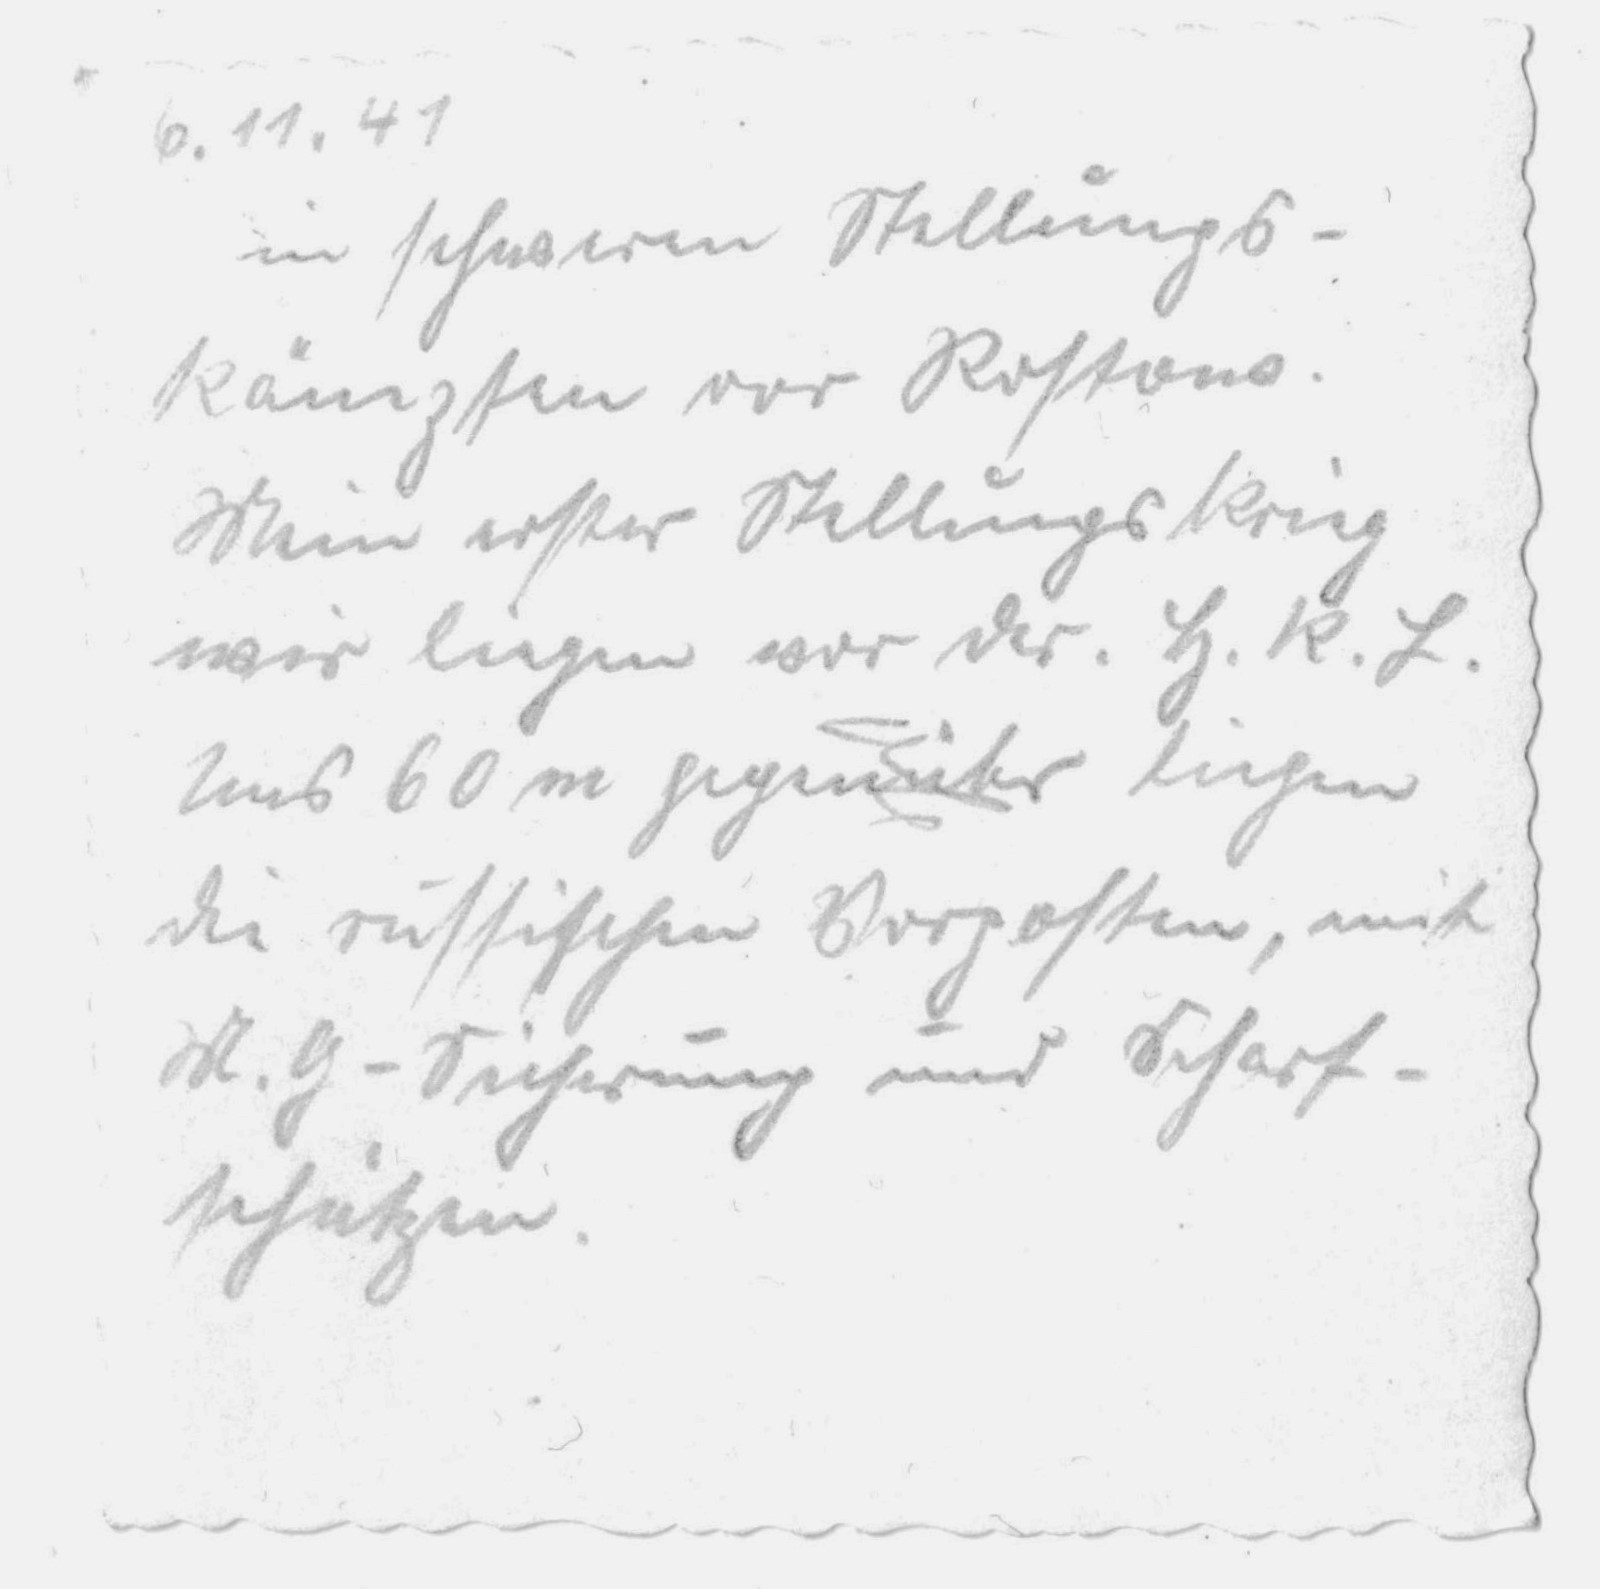 6.11.41
in schweren Stellungs-
kämpfen vor Rostow.
Mein erster Stellungskrieg
wir liegen vor der. H.K.L.
Uns 60 m gegenüber liegen
die russischen Vorposten, mit
M.G-Sicherung und Scharf-
schützen.